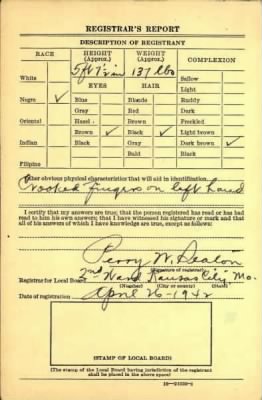 REGISTRAR'S REPORT
DESCRIPTION OF REGISTRANT
RACE HEIGHT (Approx.) WEIGHT (Approx.) COMPLEXION
White 5 ft 7½ in 137 lbs Sallow
EYES HAIR Light
Negro ✓ Blue Blonde Ruddy
Gray Red Dark
Oriental Hazel Brown Freckled
Brown ✓ Black ✓ Light brown
Indian Black Gray Dark brown ✓
Bald Black
Filipino
Other obvious physical characteristics that will aid in identification
Crooked fingers on left hand
I certify that my answers are true; that the person registered has read or has had read to him his own answers; that I have witnessed his signature or mark and that all of his answers of which I have knowledge are true, except as follows:
Perry W. Seaton
(Signature of registrar)
Registrar for Local Board 2nd Ward Kansas City Mo.
(Number) (City or county) (State)
Date of registration April 26-1942
(STAMP OF LOCAL BOARD)
(The stamp of the Local Board having jurisdiction of the registrant shall be placed in the above space)